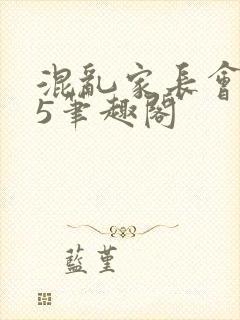 混亂家長會
5筆趣閣
藍堇